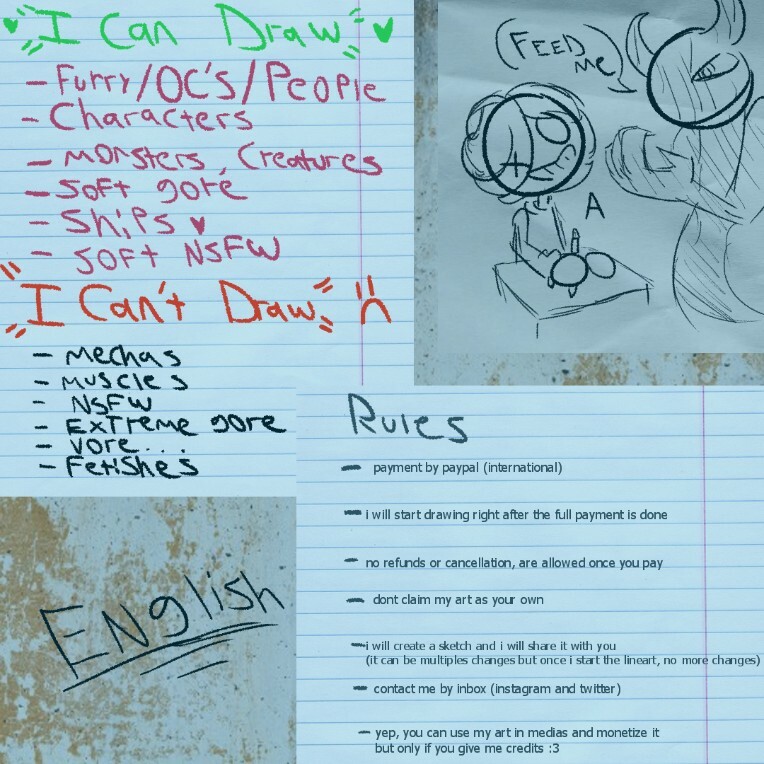 I Can Draw
- Furry/OC's/People
- Characters
- Monsters, Creatures
- Soft gore
- Ships ♥
- Soft NSFW
I Can't Draw :(
- Mechas
- Muscles
- NSFW
- Extreme gore
- Vore...
- Fetishes
(FEED
ME)
A
English
Rules
- payment by paypal (international)
- i will start drawing right after the full payment is done
- no refunds or cancellation, are allowed once you pay
- dont claim my art as your own
- i will create a sketch and i will share it with you
(it can be multiples changes but once i start the lineart, no more changes)
- contact me by inbox (instagram and twitter)
- yep, you can use my art in medias and monetize it
but only if you give me credits :3